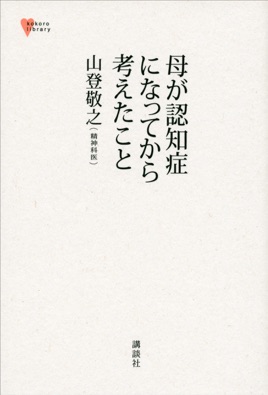 kokoro
library
母が認知症
になってから
考えたこと
山登敬之（精神科医）
講談社